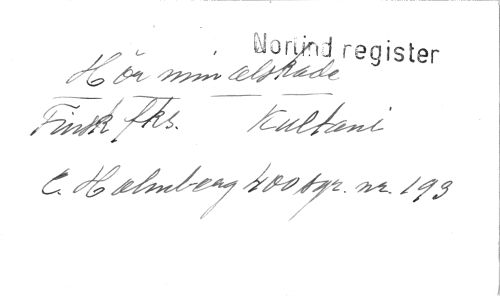 Norlind register
Hör min älskade
Finsk fks. Kultani
E. Holmberg 400 sgr. nr. 193